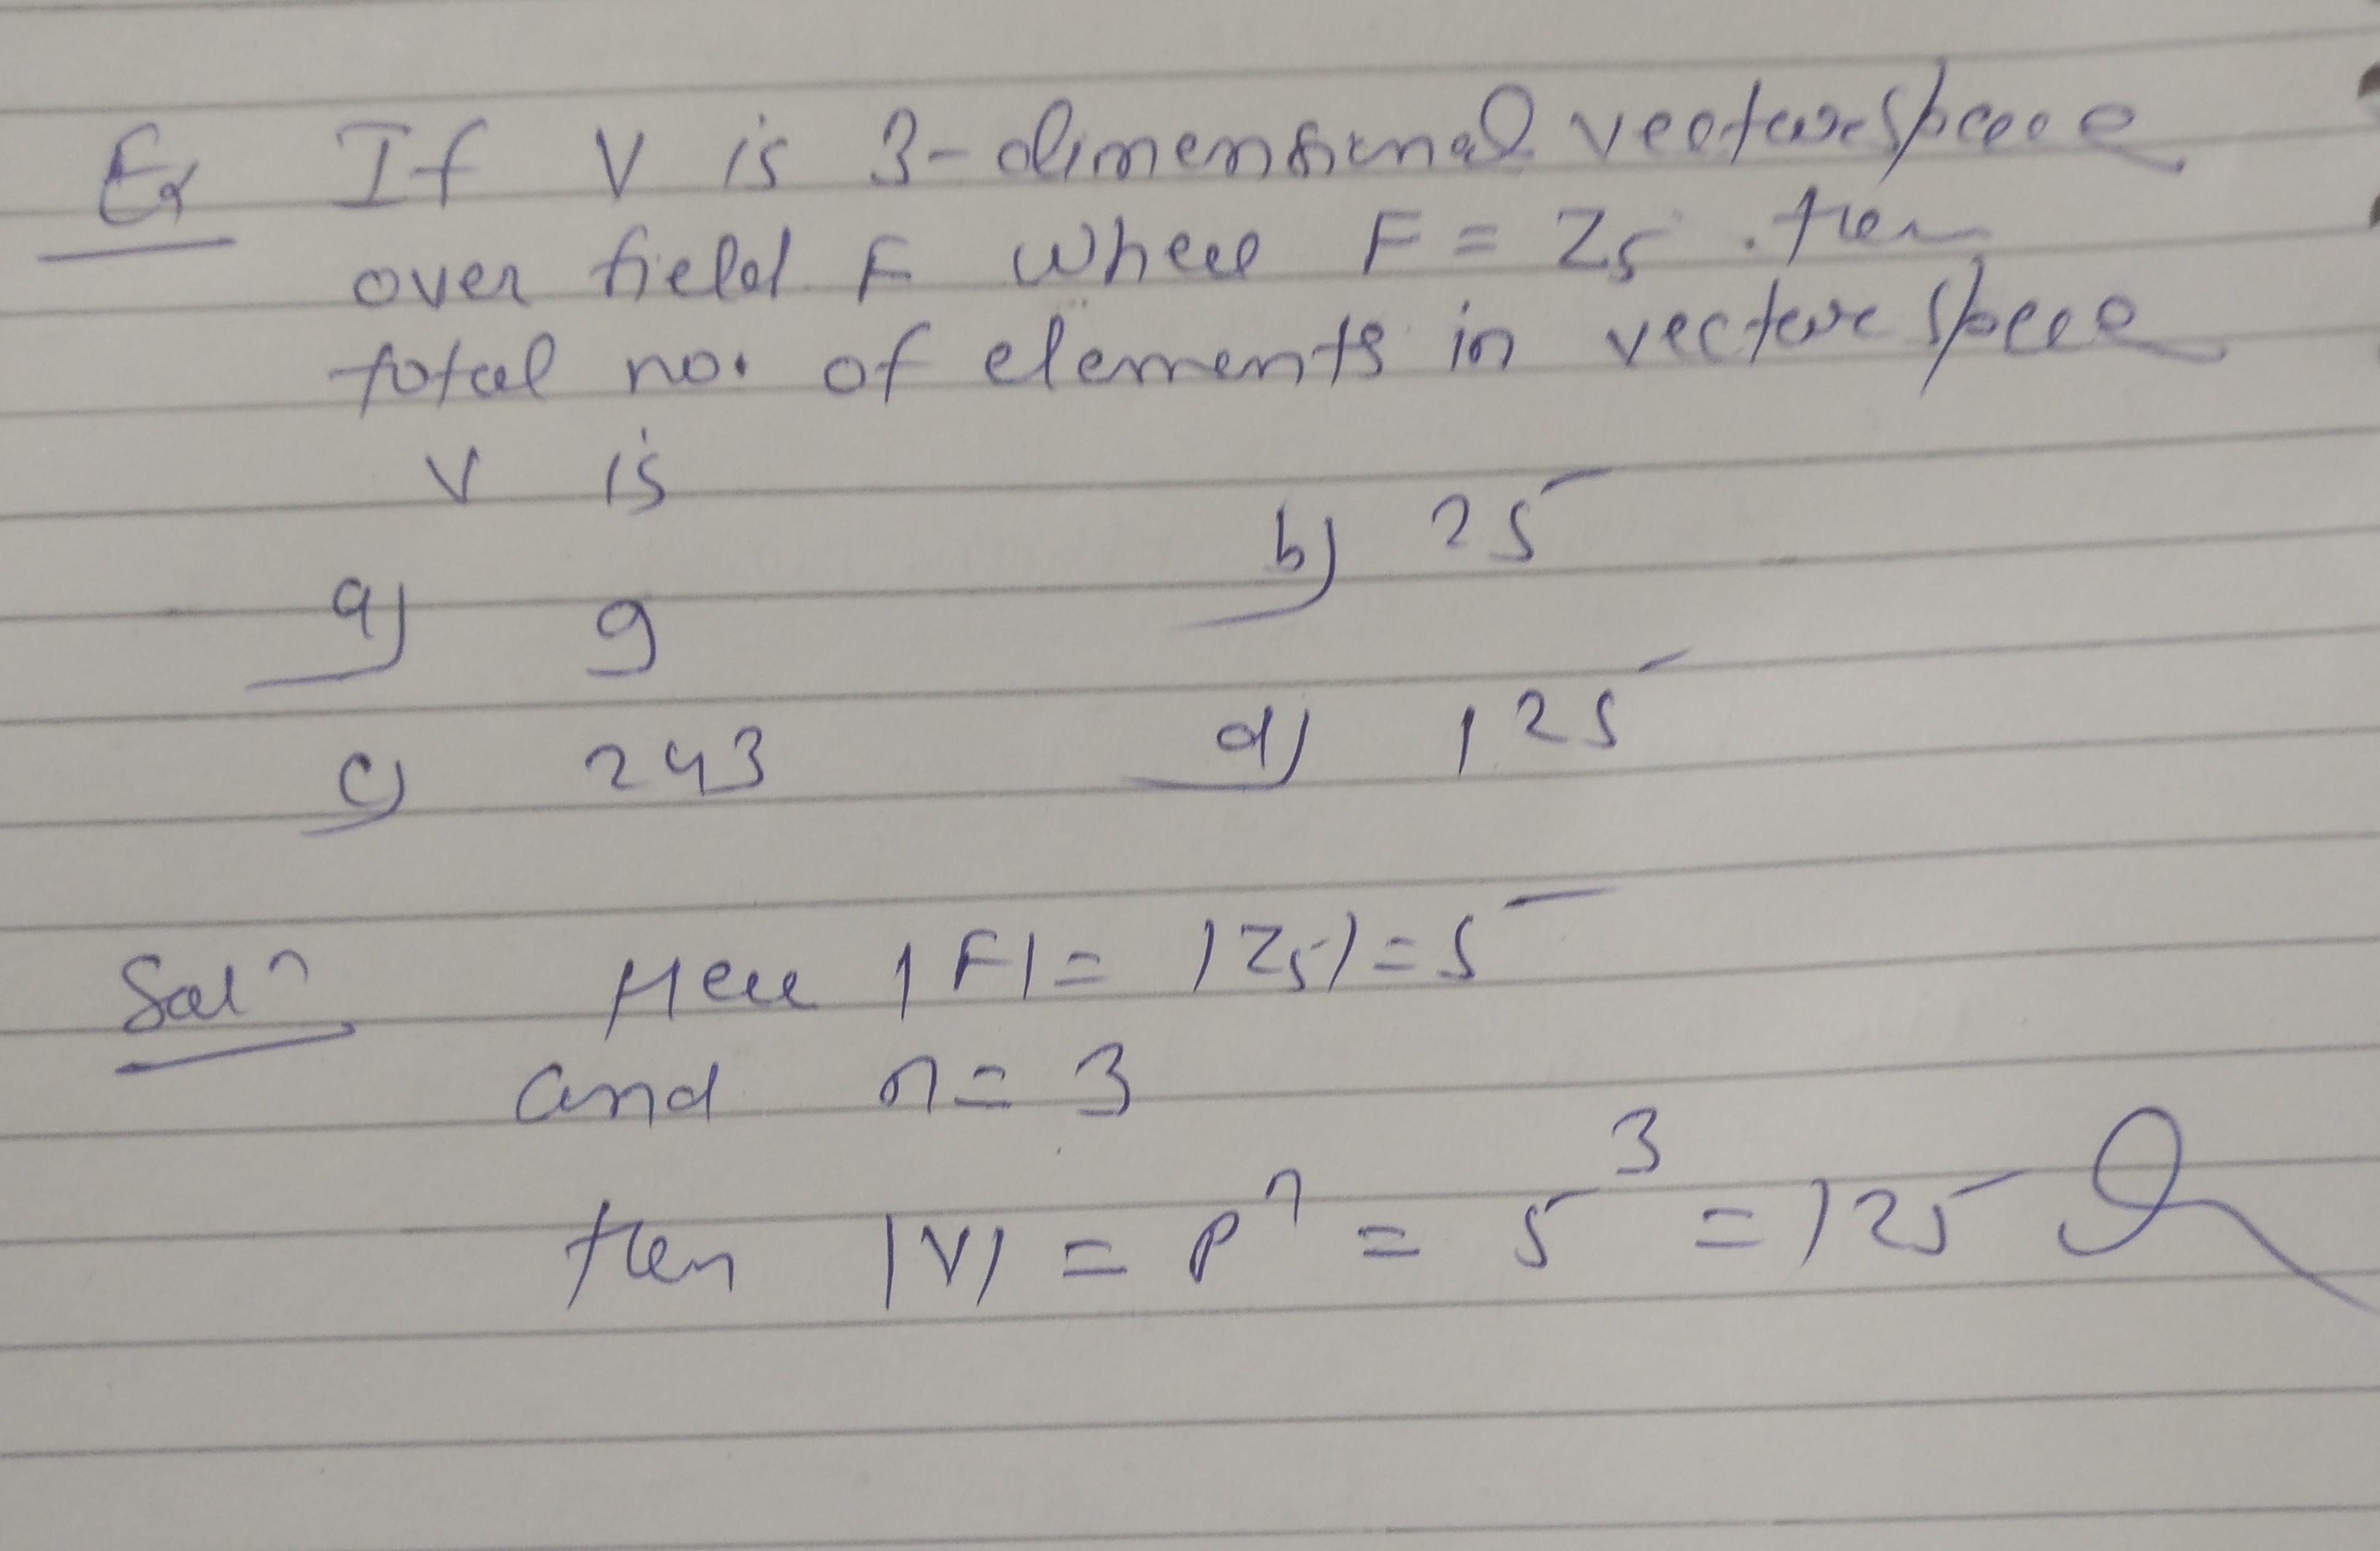 Ex If V is 3-dimensional vector space
over field F where F = Z5 . then
total no. of elements in vector space
V is
a) 9 b) 25
c) 243 d) 125
Solⁿ Here |F| = |Z5| = 5
and n = 3
then |V| = pⁿ = 5³ = 125